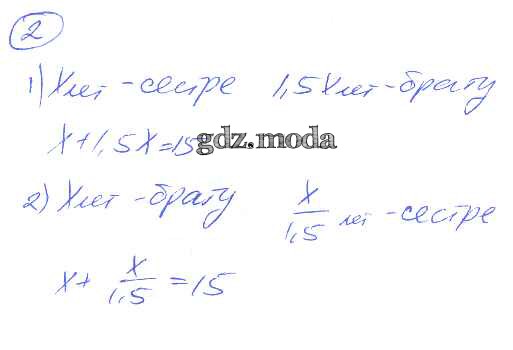 2
1) X лет - сестре 1,5X лет - брату
X + 1,5X = 15
gdz.moda
2) X лет - брату X/1,5 лет - сестре
x + X/1,5 = 15